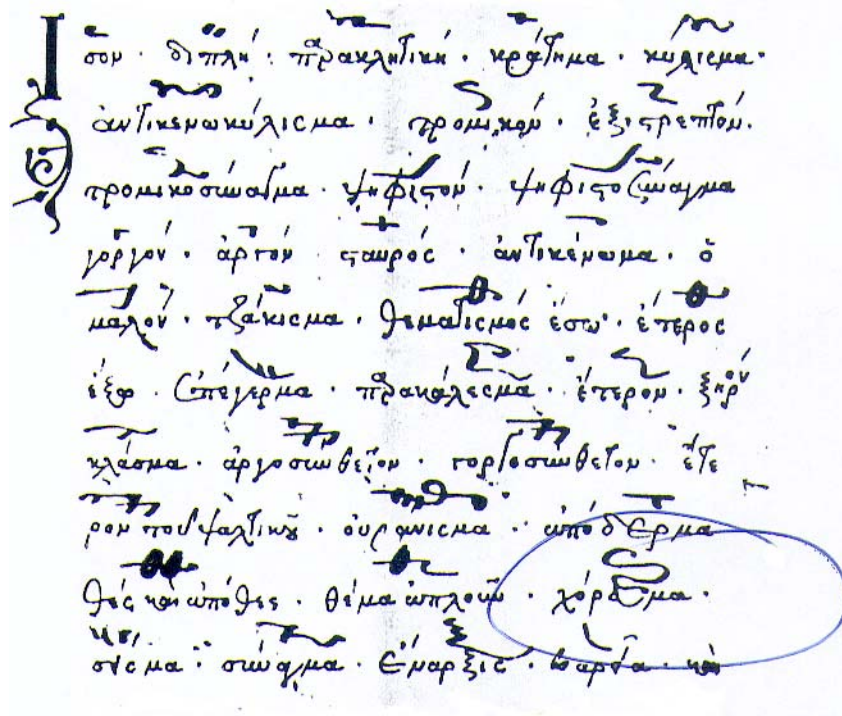 Ἴσον · διπλή · παρακλητική · κράτημα · κύλισμα ·
ἀντικενωκύλισμα · τρομικόν · ἐξιστρεπτόν ·
τρομικοσύναγμα · ψηφιστόν · ψηφιστοσύναγμα
γοργόν · ἀργόν σταυρός · ἀντικένωμα · ὁ
μαλόν · τζάκισμα · θεματισμός ἔσω · ἕτερος
ἔξω · ἐπέγερμα · παρακάλεσμα · ἕτερον · ξηρόν
κλάσμα · ἀργοσύνθετον · γοργοσύνθετον · ἕτε
ρον τοῦ ψαλτικοῦ · οὐράνισμα · ἀπόδερμα
θές καὶ ἀπόθες · θέμα ἁπλοῦν · χόρευμα ·
σύναγμα · ἔναρξις · βαρεῖα · καὶ